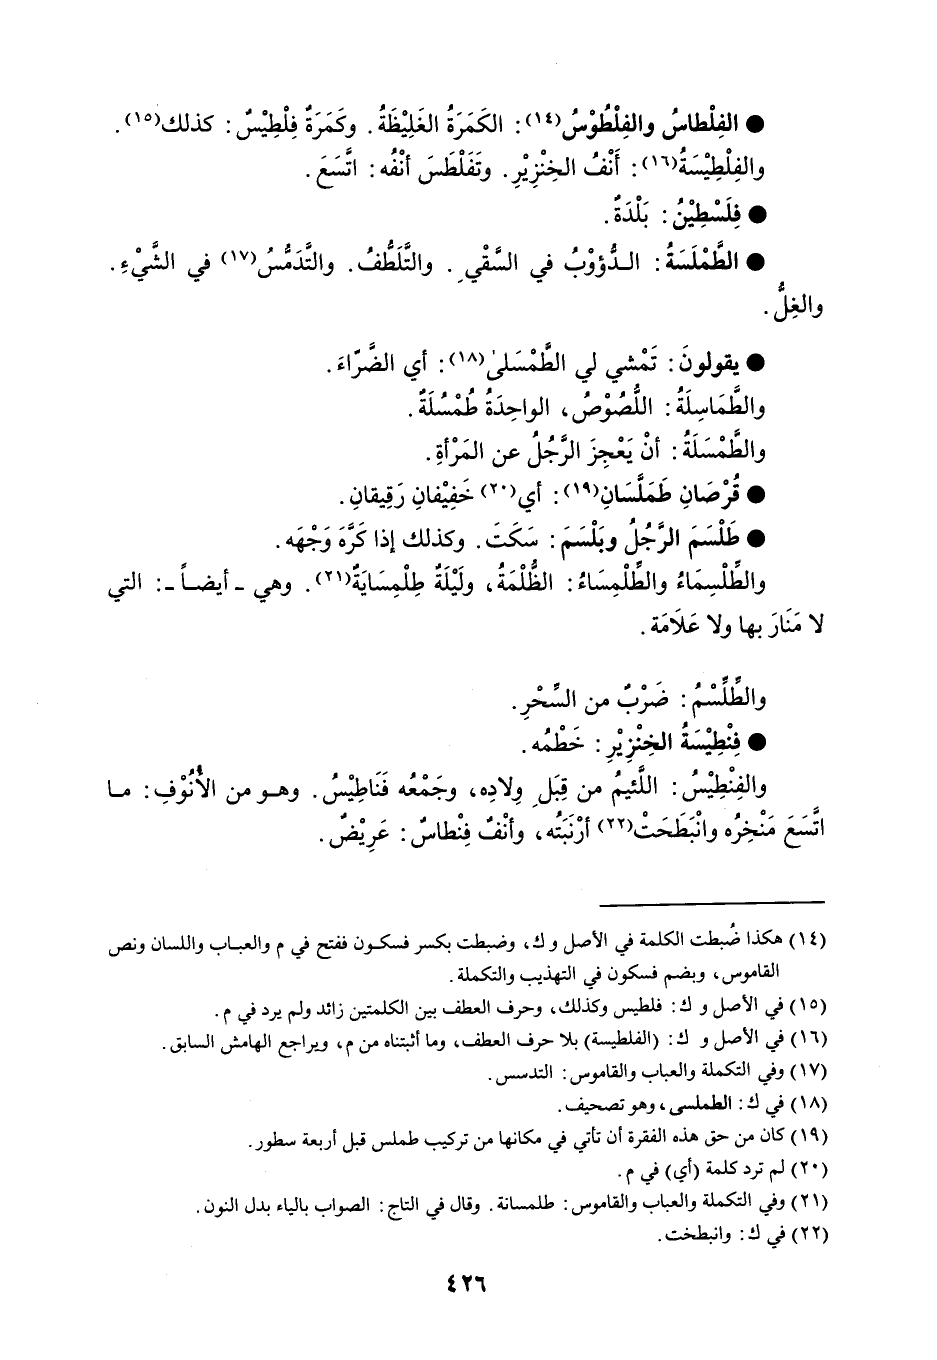 ● الفِلْطاسُ والفِلْطُوْسُ(١٤): الكَمَرَةُ الغَلِيْظَةُ. وكَمَرَةٌ فِلْطِيْسٌ: كذلك(١٥).
والفِلْطِيْسَةُ(١٦): أَنْفُ الخِنْزِيْرِ. وتَفَلْطَسَ أنْفُه: اتَّسَعَ.
● فِلَسْطِيْنُ: بَلْدَةٌ.
● الطَّمْلَسَةُ: الـدُّؤوْبُ في السَّقْيِ. والتَّلَطُّفُ. والتَّدَمُّسُ(١٧) في الشَّيْءِ.
والغِلُّ.
● يقولونَ: تَمْشي لي الطَّمْسَلىٰ(١٨): أي الضَّرّاءَ.
والطَّمَاسِلَةُ: اللُّصُوْصُ، الواحِدَةُ طُمْسُلَةٌ.
والطَّمْسَلَةُ: أنْ يَعْجِزَ الرَّجُلُ عن المَرْأةِ.
● قُرْصَانِ طَمَلَّسَانِ(١٩): أي(٢٠) خَفِيْفانِ رَقِيقانِ.
● طَلْسَمَ الرَّجُلُ وبَلْسَمَ: سَكَتَ. وكذلك إذا كَرَّهَ وَجْهَه.
والطِّلْسِمَاءُ والطِّلْمِسَاءُ: الظُّلْمَةُ، ولَيْلَةٌ طِلْمِسَايَةٌ(٢١). وهي ـ أيضـاً ـ: التي
لا مَنَارَ بها ولا عَلَامَة.
والطِّلِّسْمُ: ضَرْبٌ من السِّحْرِ.
● فِنْطِيْسَةُ الخِنْزِيْرِ: خَطْمُه.
والفِنْطِيْسُ: اللَّئيمُ من قِبَلِ وِلادِه، وجَمْعُه فَنَاطِيْسُ. وهـو من الأُنُوْفِ: مـا
اتَّسَعَ مَنْخِرُه وانْبَطَحَتْ(٢٢) أرْنَبَتُه، وأنْفٌ فِنْطاسٌ: عَرِيْضٌ.
(١٤) هكذا ضُبطت الكلمة في الأصل و ك، وضبطت بكسر فسكـون ففتح في م والعبـاب واللسان ونص
القاموس، وبضم فسكون في التهذيب والتكملة.
(١٥) في الأصل و ك: فلطيس وكذلك، وحرف العطف بين الكلمتين زائد ولم يرد في م.
(١٦) في الأصل و ك: (الفلطيسة) بلا حرف العطف، وما أثبتناه من م، ويراجع الهامش السابق.
(١٧) وفي التكملة والعباب والقاموس: التدسس.
(١٨) في ك: الطملسى، وهو تصحيف.
(١٩) كان من حق هذه الفقرة أن تأتي في مكانها من تركيب طملس قبل أربعة سطور.
(٢٠) لم ترد كلمة (أي) في م.
(٢١) وفي التكملة والعباب والقاموس: طلمسانة. وقال في التاج: الصواب بالياء بدل النون.
(٢٢) في ك: وانبطخت.
٤٢٦